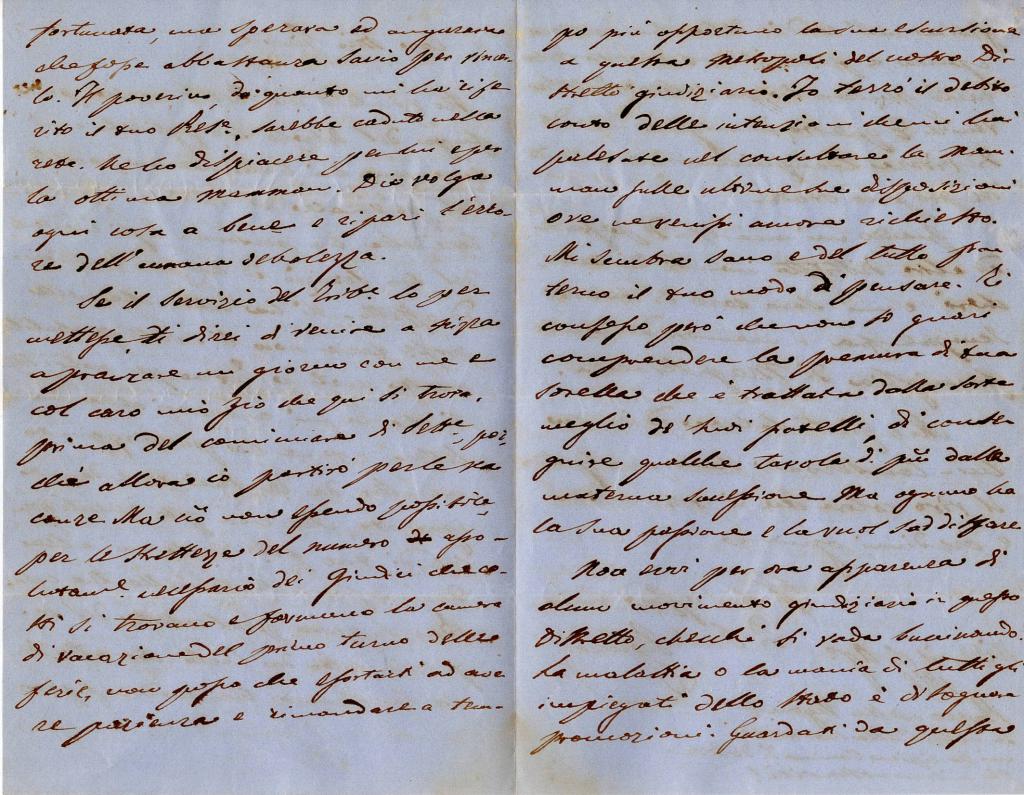 fortunata, ma sperava ed augurava
che fosse abbastanza savio per vincer
lo. Il poverino, da quanto mi ha rife
rito il tuo Res.e, sarebbe caduto nella
rete. Ne ho dispiacere per lui e per
la ottima mamman. Dio volga
ogni cosa a bene e ripari l'erro-
re dell'umana debolezza.
Se il servizio del Trib.e lo per
mettesse ti direi di venire a
a pranzare un giorno con me e
col caro mio zio che qui si trova,
prima del cominciare di Sett.e, poi-
ché allora io partirò per le va
canze. Ma ciò non essendo possibile,
per le strettezze del numero asso-
lutam.e necessario dei Giudici che co-
stì si trovano e formano la camera
di vacazione del primo turno delle
ferie, non posso che esortarti ad ave
re pazienza e rimandare a tem-
po più opportuno la tua escursione
a questa metropoli del nostro Di-
stretto giudiziario. Io terrò il debito
conto delle intenzioni che mi hai
palesate nel consultare la mam-
man sulle ultime sue disposizioni
ove ne venissi ancora richiesto.
Mi sembra sano e del tutto fra
terno il tuo modo di pensare. Ti
confesso però che non so guari
comprendere la premura di tua
sorella che è trattata dalla sorte
meglio de' suoi fratelli, di conse
guire qualche tavola di più dalla
materna successione. Ma ognuno ha
la sua passione e la vuol soddisfare
Non evvi per ora apparenza di
alcun movimento giudiziario in questo
Distretto, checchè si vada bucinando.
La malattia o la mania di tutti gli
impiegati dello Stato è di sognare
promozioni. Guardati da questa